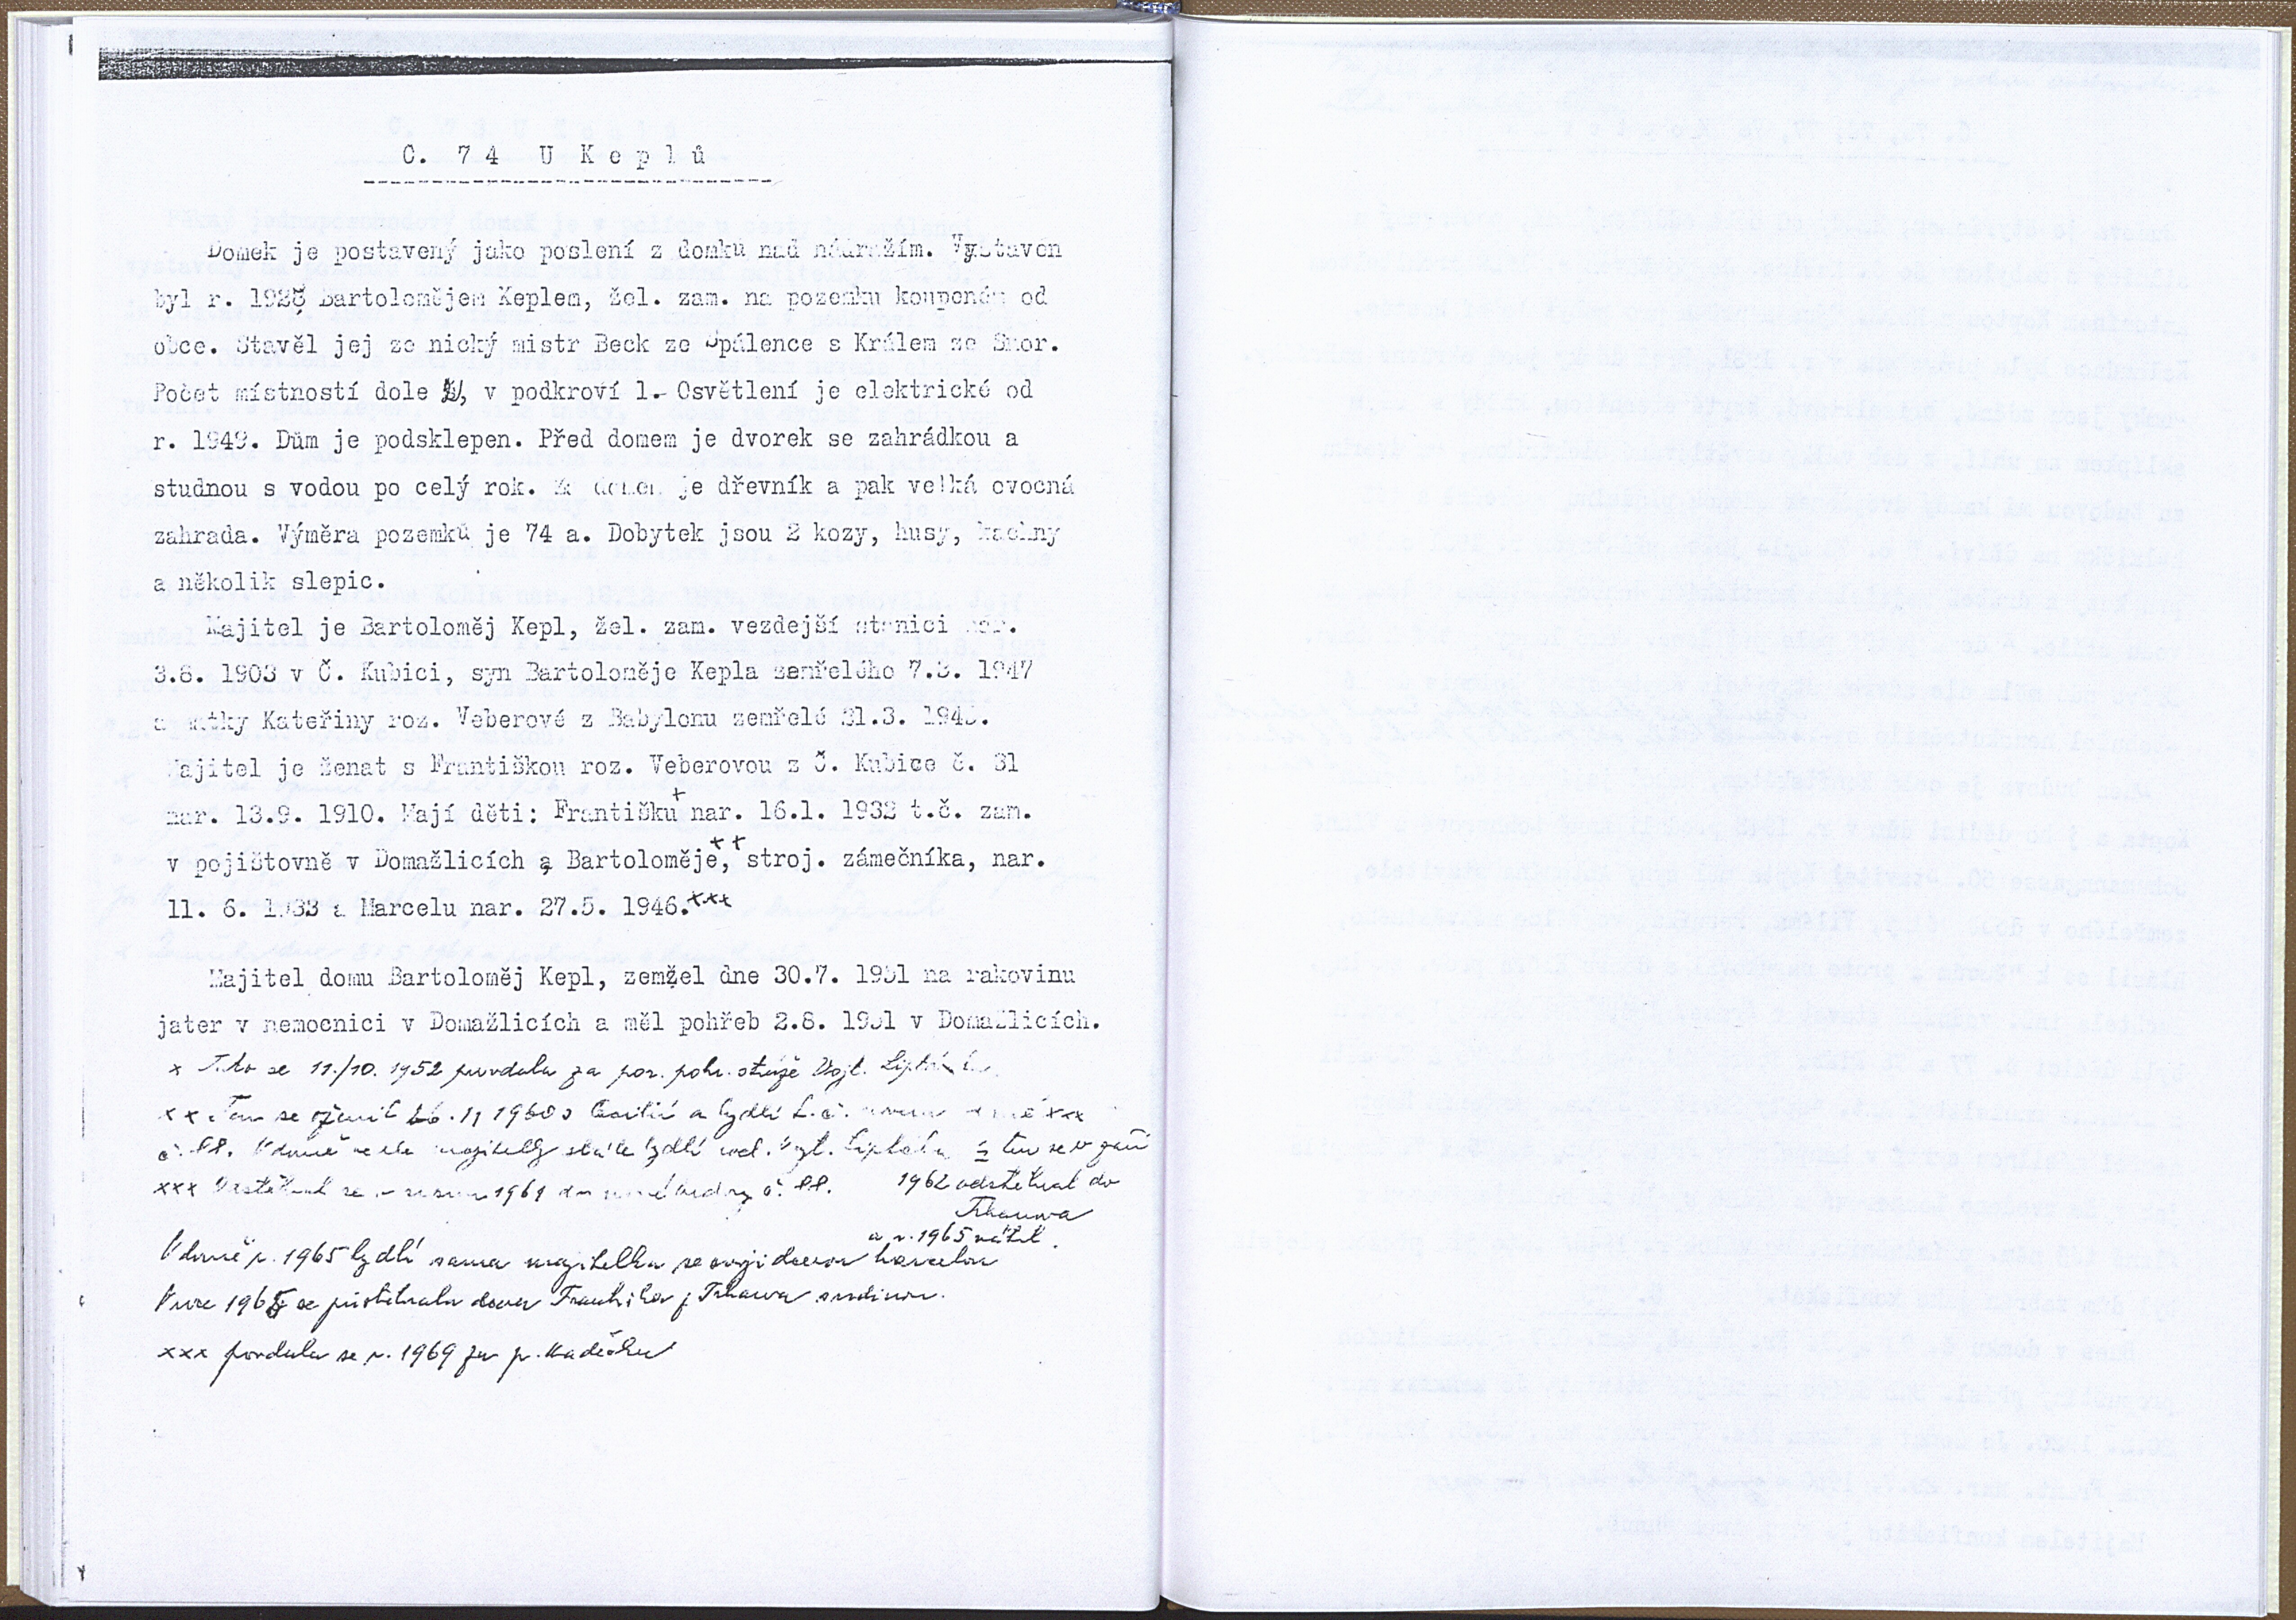 C. 74 U Keplů
Domek je postavený jako poslení z domku nad nádražím. Vystavěn
byl r. 1928 Bartolomějem Keplem, žel. zam. na pozemku koupeném od
obce. Stavěl jej zednický mistr Beck ze Spálence s Králem ze Smor.
Počet místností dole, v podkroví 1.- Osvětlení je elektrické od
r. 1949. Dům je podsklepen. Před domem je dvorek se zahrádkou a
studnou s vodou po celý rok. Za domem je dřevník a pak velká ovocná
zahrada. Výměra pozemků je 74 a. Dobytek jsou 2 kozy, husy, kachny
a několik slepic.
Majitel je Bartoloměj Kepl, žel. zam. vezdejší stanici nar.
3.8. 1903 v Č. Kubici, syn Bartoloměje Kepla zemřelého 7.3. 1947
a matky Kateřiny roz. Veberové z Babylonu zemřelé 31.3.
Majitel je ženat s Františkou roz. Veberovou z Č. Kubice č. 31
nar. 13.9. 1910. Mají děti: Františku + nar. 16.1. 1932 t.č. zam.
v pojištovně v Domažlicích a Bartoloměje, ++ stroj. zámečníka, nar.
11. 6. 1933 a Marcelu nar. 27.5. 1946. xxx
Majitel domu Bartoloměj Kepl, zemžel dne 30.7. 1951 na rakovinu
jater v nemocnici v Domažlicích a měl pohřeb 2.8. 1951 v Domažlicích.
x Tato se 11./10. 1952 provdala za por. pohr. stráže Vojt. Liptáka.
xx Ten se oženil 26.11 1960 a bydlí t.č. xxx
č. 88. V domě majitelky stále bydlí Vojt. Liptáka ten se v září
xxx se 1961 do č. 88. 1962 odstěhoval do
Trhanova
a r. 1965 vrátil.
V domě r. 1965 bydlí sama majitelka se svojí dcerou Marcelou
V roce 1965 se přistěhovala dcera Františka z Trhanova s rodinou.
xxx provdala se r. 1969 za p.